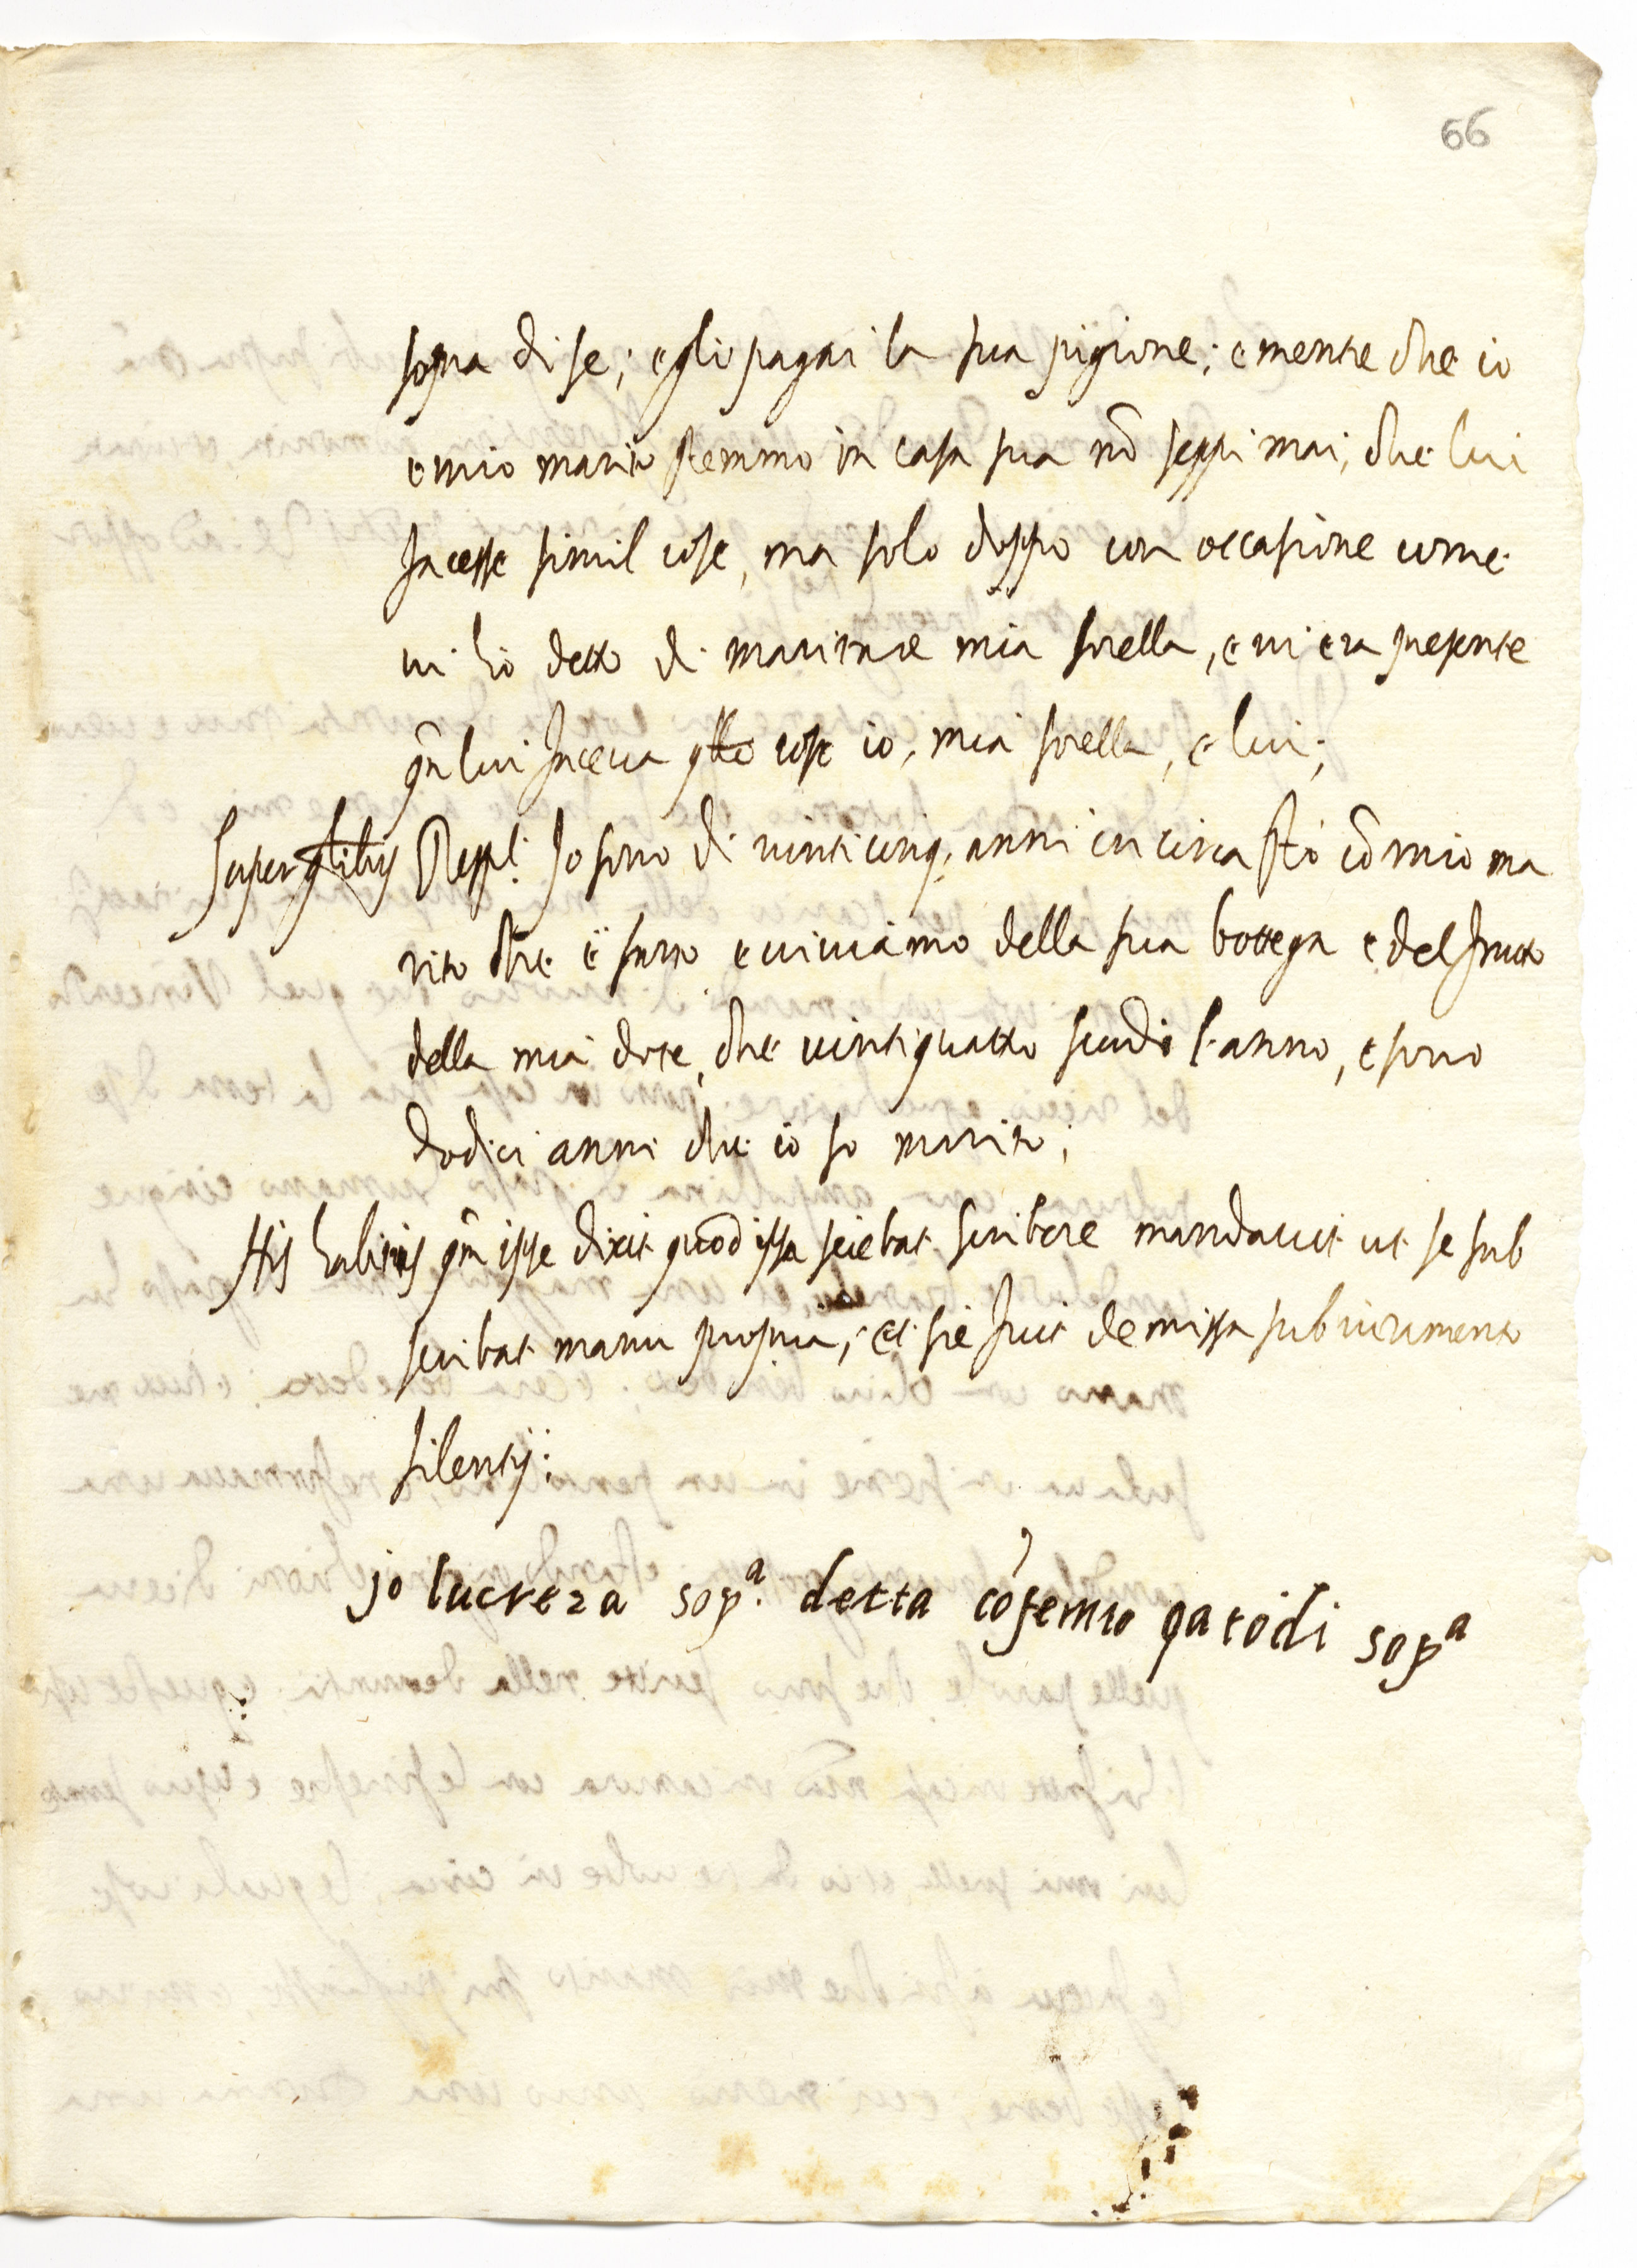 66
sopra di se; e gli pagai la sua pigione; e mentre che io
e mio marito stemmo in casa sua nō seppi mai, che lui
facesse simil cose, ma solo doppo con occasione come
vi hò detto di mia sorella, e vi era presente
qn̄ lui faceva qlle cose io, mia sorella, e lui;
Super Resp.t Io sono di vinticinq; anni in circa stò cō mio ma
rito che è sarto e viviamo della sua bottega e del frutto
della mia dote, che vintiquattro scudi l'anno, e sono
dodici anni che io ho marito;
His habitis qn̄ ipse dixit quod ipsa sciebat scribere mandavit ut se sub
scribat manu propria; et sic fuit demissa sub iuramento
silentij;
jo lucreza sop.a detta cōfermo qātodi sop.a